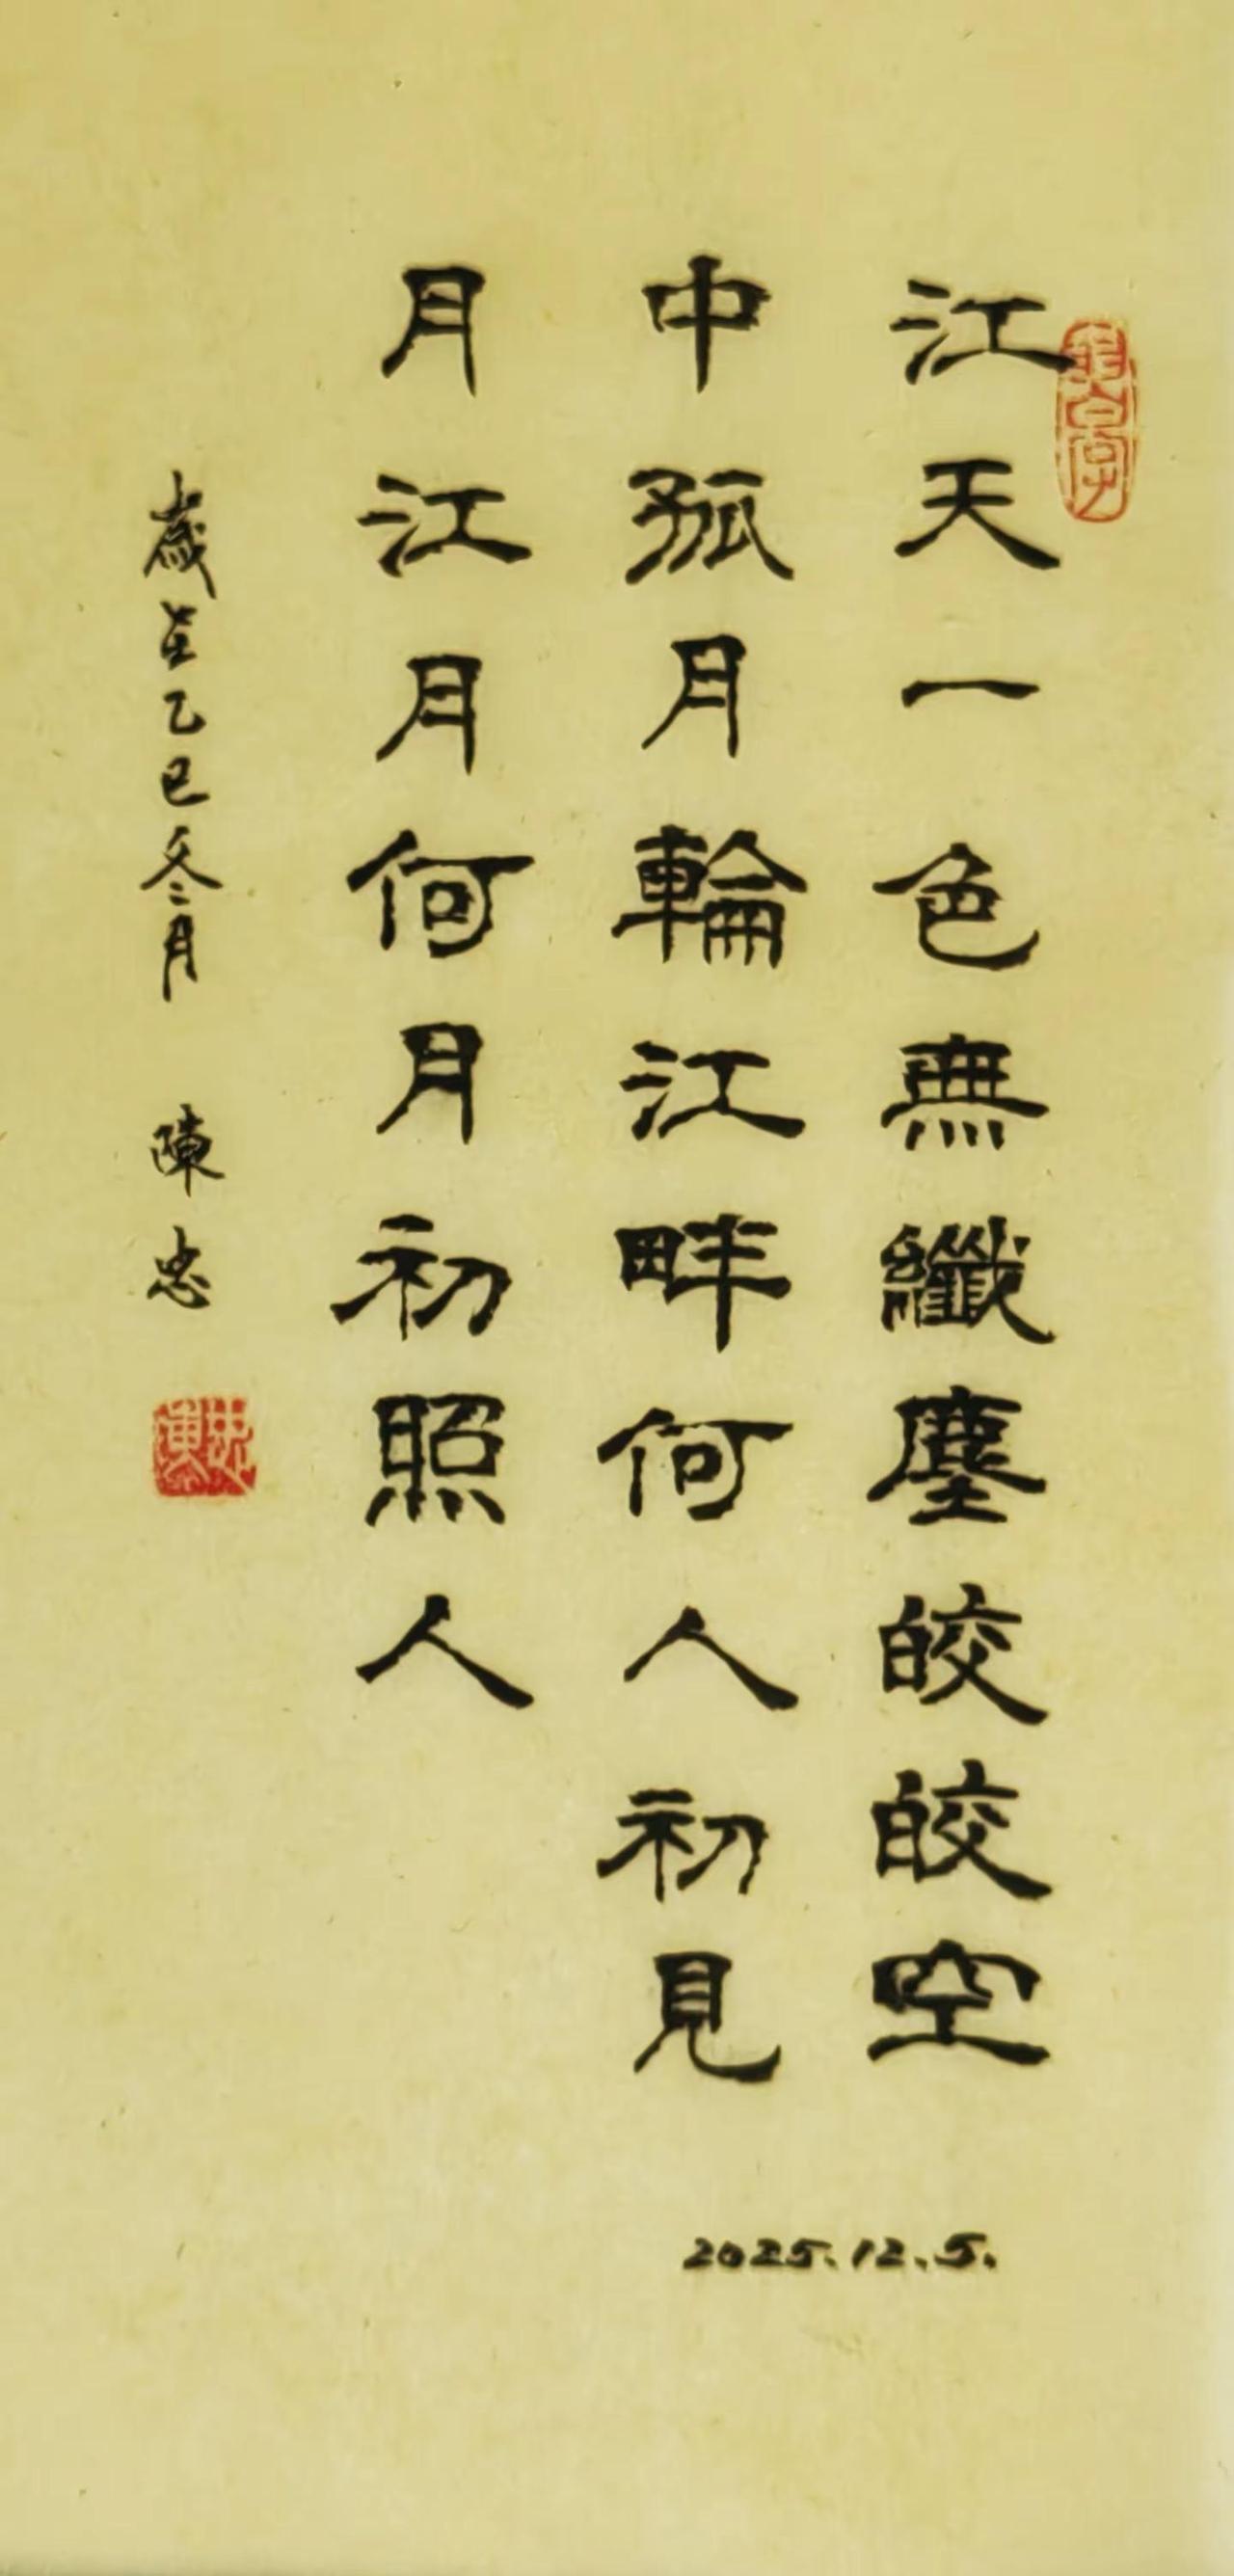 江天一色無纖塵皎皎空
中孤月輪江畔何人初見
月江月何月初照人
歲在乙巳冬月 陳忠
2025.12.5.